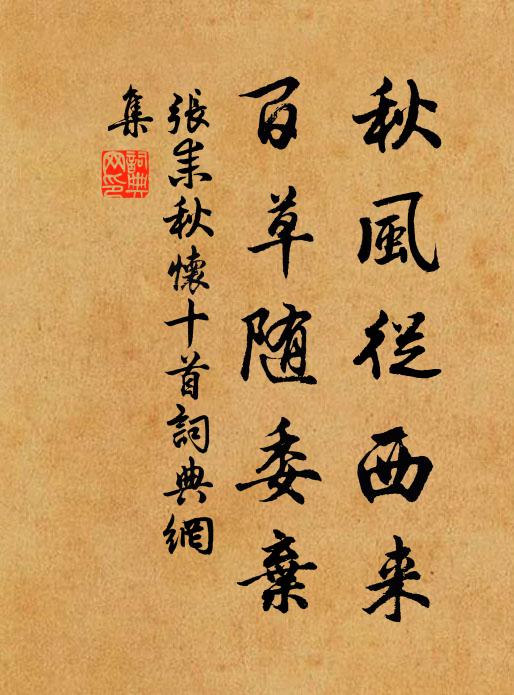 秋風從西来
百草随委棄
張耒秋懷十首詞典網
集
詞典網印